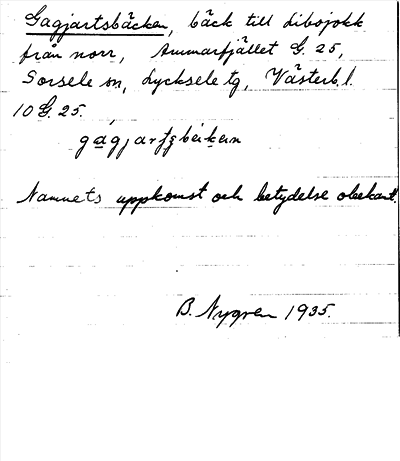 Gagjartsbäcken, bäck till Dibojokk
från norr, Ammarfjället G. 25,
Sorsele sn, Lycksele tg, Västerb. l.
10 G. 25.
Namnets uppkomst och betydelse obekant.
B. Nygren 1935.